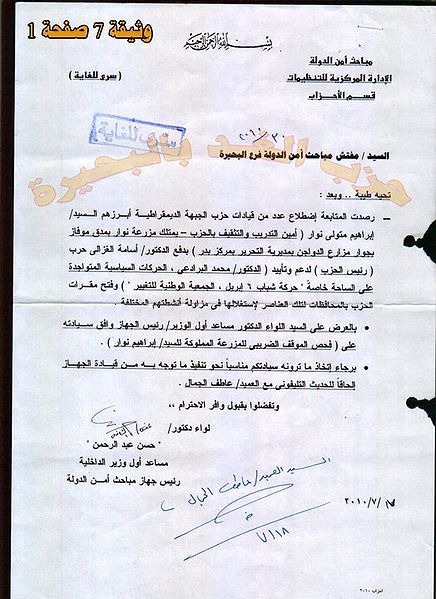 وثيقة 7 صفحة 1
بسم الله الرحمن الرحيم
مباحث أمن الدولة
الإدارة المركزية للتنظيمات
( سرى للغاية )
قسم الأحزاب
سرى للغاية
السيد / مفتش مباحث أمن الدولة فرع البحيرة
حزب الغد بالبحيرة
تحية طيبة .. وبعد :
– رصدت المتابعة إضطلاع عدد من قيادات حزب الجبهة الديمقراطية أبرزهم السيد/
إبراهيم متولى نوار ( أمين التدريب والتثقيف بالحزب – يمتلك مزرعة نوار بمدق موفاز
بجوار مزارع الدواجن بمديرية التحرير بمركز بدر ) بدفع الدكتور/ أسامة الغزالى حرب
( رئيس الحزب ) لدعم وتأييد ( الدكتور/ محمد البرادعي ، الحركات السياسية المتواجدة
على الساحة خاصة " حركة شباب ٦ إبريل ، الجمعية الوطنية للتغيير " ) وفتح مقرات
الحزب بالمحافظات لتلك العناصر لإستغلالها فى مزاولة أنشطتهم المختلفة .
• بالعرض على السيد اللواء الدكتور مساعد أول الوزير/ رئيس الجهاز وافق سيادته
على ( فحص الموقف الضريبي للمزرعة المملوكة للسيد/ إبراهيم نوار ) .
• برجاء إتخاذ ما ترونه سيادتكم مناسباً نحو تنفيذ ما توجه به من قيادة الجهاز
إلحاقاً للحديث التليفونى مع العميد/ عاطف الجمال .
وتفضلوا بقبول وافر الاحترام ،،
لواء دكتور/
" حسن عبد الرحمن "
مساعد أول وزير الداخلية
رئيس جهاز مباحث أمن الدولة
السيد العميد/ عاطف الجمال
٢٠١٠/٧/
٧/١٨
أحزاب ٢٠١٠